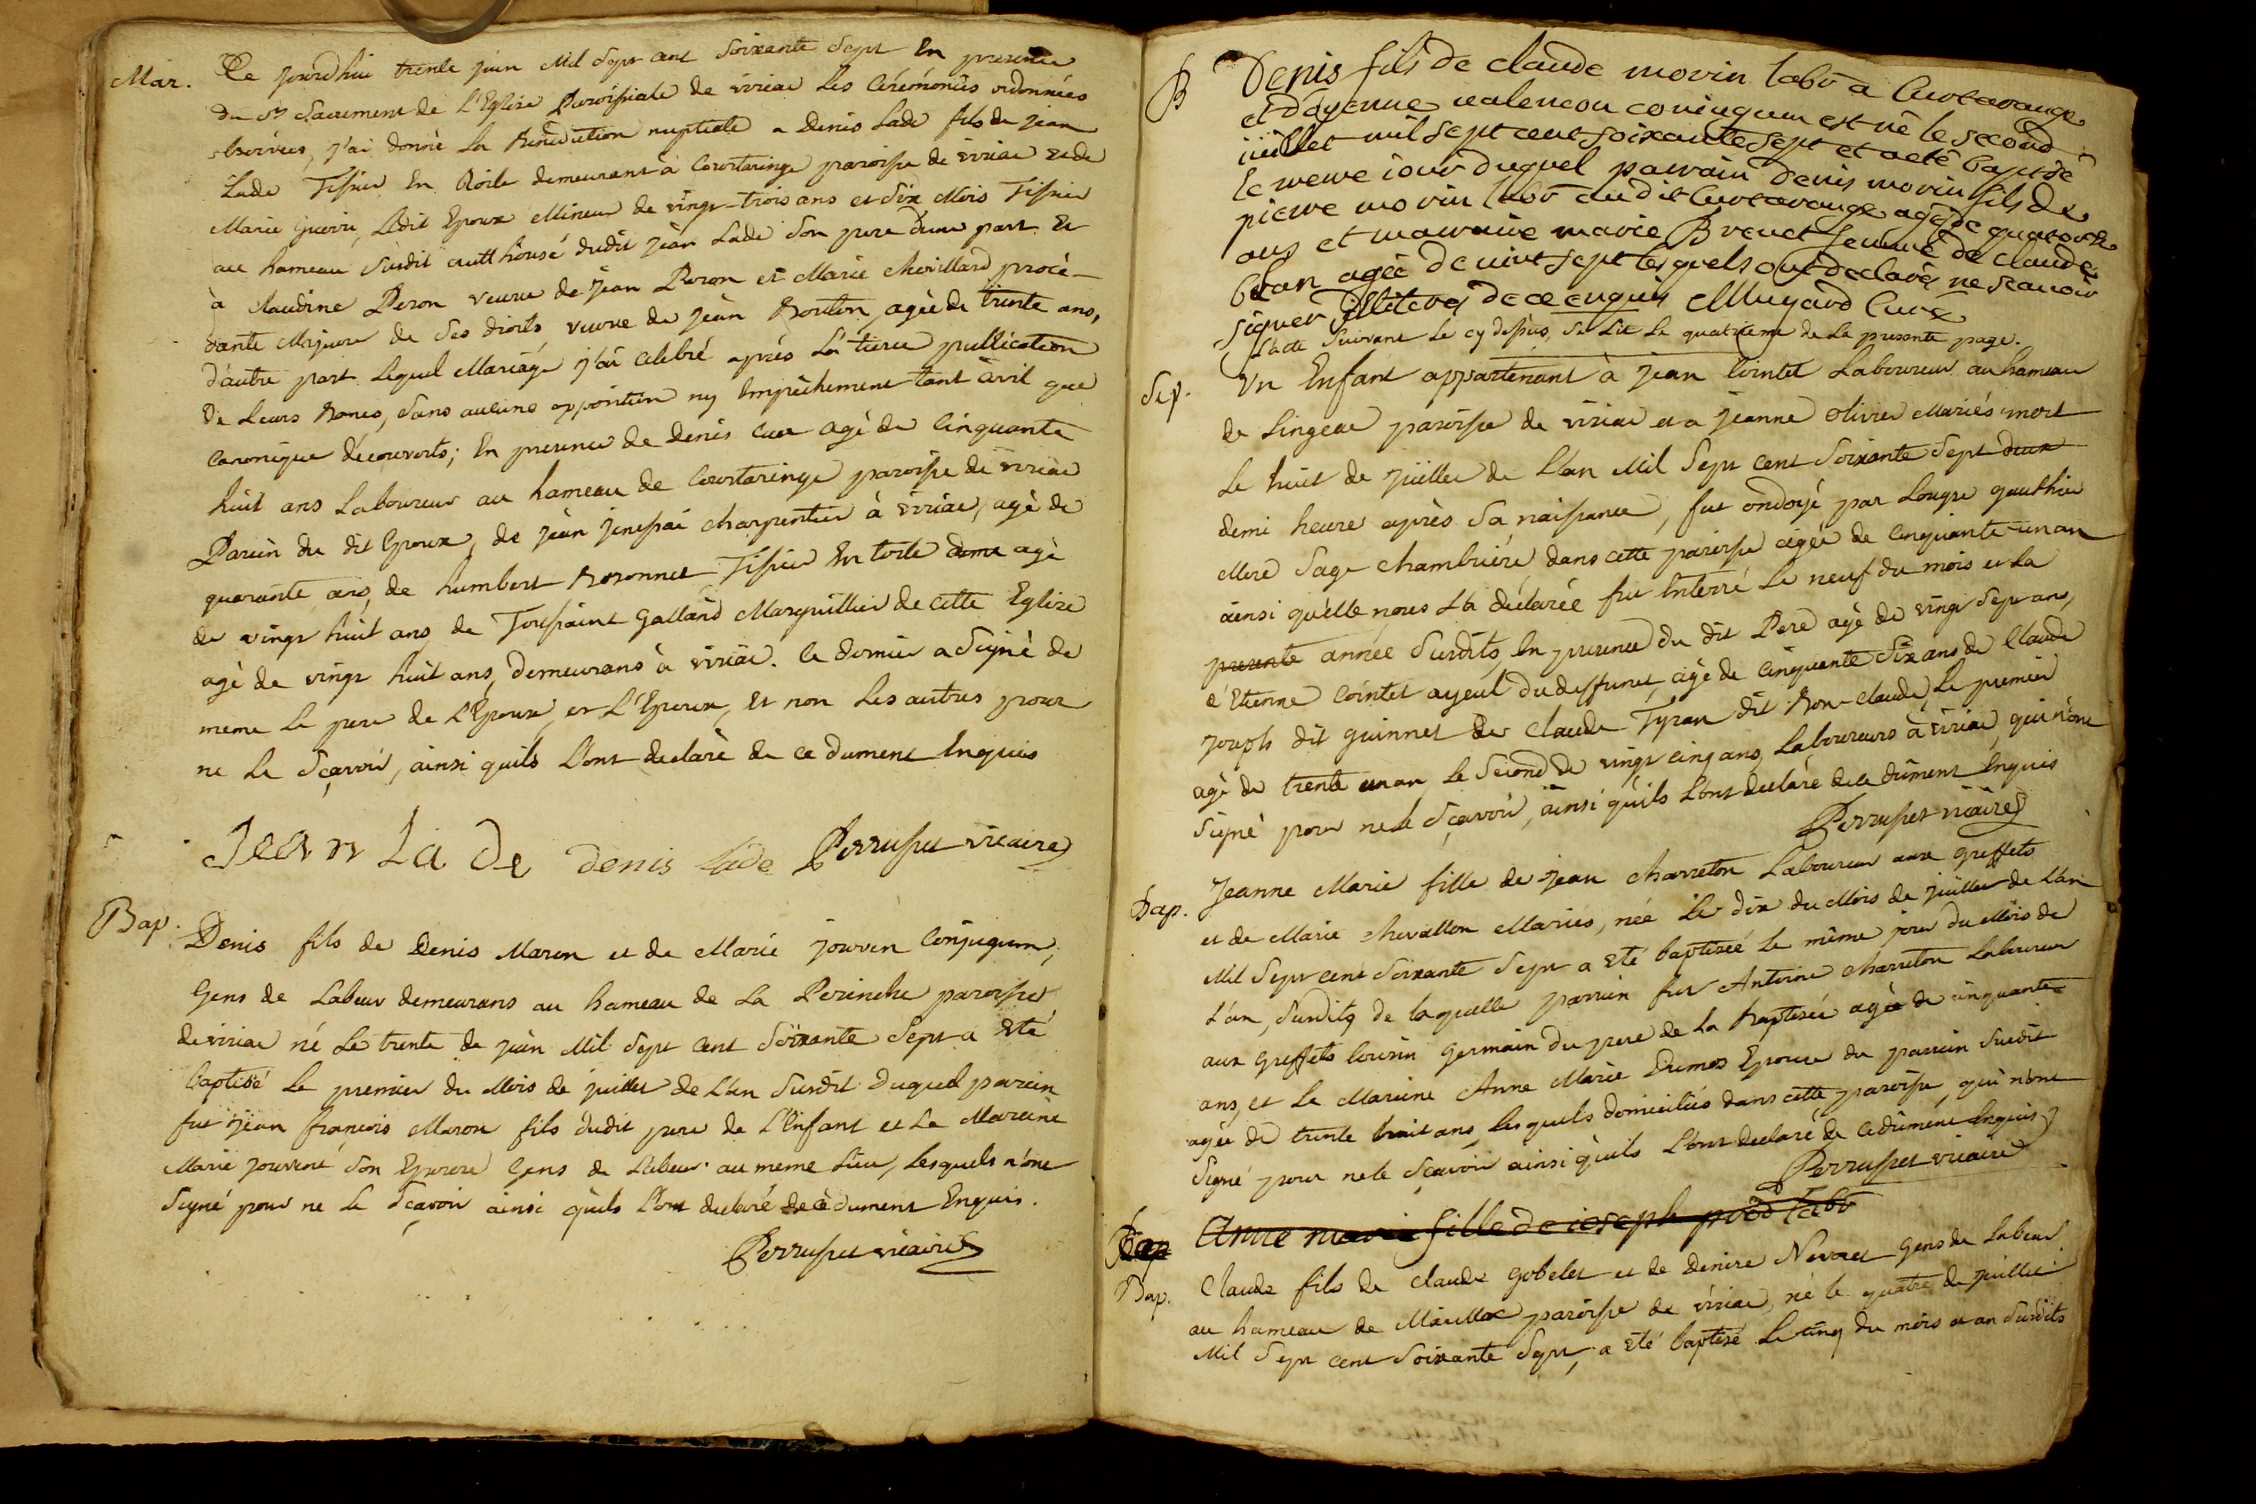 Mar. Ce jourdhui trente juin Mil Sept cent Soixante Sept En presence
du St Sacrement de L'Eglise Paroissiale de viriac Les Cérémonies ordonnées
observées, j'ai donné La Bénédiction nuptiale a Denis Lade fils de jean
Lade Tissier En toile demeurant à Courtaringe paroisse de viriac et de
Marie Guerin, Ledit Epoux Mineur de vingt-trois ans et Six Mois Tissier
au hameau Susdit authhorisé dudit jean Lade Son pere d'une part Et
à Claudine Peron veuve de jean Peron et Marie Chevillard procè-
dante Majeure de Ses droits veuve de jean Bouton agée de trente ans,
d'autre part Lequel Mariage j'ai celebré après La tierce publication
de Leurs Bancs, Sans aucune opposition ny Empêchement tant civil que
Canonique découverts; En presence de denis agé de Cinquante
huit ans Laboureur au hameau de Courtaringe paroisse de viriac
Parain du dit Epoux, de jean charpentier à viriac, agé de
quarante ans, de humbert Tissier En toile agé
de vingt huit ans de Toussaint Galland Marguillier de cette Eglise
agé de vingt huit ans, demeurans à viriac. Ce dernier a Signé de
meme Le pere de L'Epoux, et L'Epoux, Et non Les autres pour
ne Le Sçavoir, ainsi quils L'ont declaré de ce dument Enquis
Jean La De denis lade Perruset vicaire
Bap. Denis fils de Denis Maron et de Marie jouven Conjugum,
Gens de Labeur demeurans au hameau de La Perinche paroisse
de viriac né Le trente de juin Mil Sept Cent Soixante Sept a Eté
baptisé Le premier du Mois de juillet de L'an Susdit Duquel parain
fut jean francois Maron fils dudit pere de L'Enfant et La Maraine
Marie jouvent Son Epouse Gens de Labeur au meme Lieu, Lesquels n'ont
Signé pour ne Le Sçavoir ainsi quils L'ont declaré de ce dument Enquis.
Perruset vicaire
B Denis fils de claude morin labr a Curtarange
et valencon coniugum est né le second
iuillet mil sept cent soixante sept et a eté baptisé
le meme iour duquel parrain denis morin fils de
pierre morin labr audit Curtarange agé de quatorze
ans et marraine marie Brevet femme de claude
agée de vint sept lesquels ont declarés ne scavoir
signer de ce enquis Muyard Curé
L'acte Suivant Le cy dessus, Se Lit Le quatrieme de La presente page.
Sep. Un Enfant appartenant à jean Cointet Laboureur au hameau
de Lingeat paroisse de viriac et a jeanne Olivier Mariés mort
Le huit de juillet de L'an Mil Sept cent Soixante Sept
demi heure après Sa naissance, fut ondoyé par gauthier
Mere Sage chambriere dans cette paroisse agée de Cinquante-un an
ainsi qu'elle nous L'a déclaré fut Enterré Le neuf du mois et La
presente année Susdits, En presence du dit Pere agé de vingt Sept ans,
d'Etienne Cointet ayeul du deffunt, agé de Cinquante Six ans de Claude
joseph dit guinnet de Claude Tyran dit Bon-claude, Le premier
agé de trente un an Le Second de vingt cinq ans, Laboureurs à viriac, qui n'ont
Signé pour ne le Sçavoir, ainsi qu'ils L'ont declaré de ce dûment Enquis
Perruset vicaire
Bap. Jeanne Marie fille de jean charreton Laboureur aux greffets
et de Marie chevallon Mariés, née Le dix du Mois de juillet de L'an
Mil Sept cent Soixante Sept a Eté baptisée Le même jour du Mois de
L'an, Susdits de laquelle parrain fut Antoine charreton Laboureur
aux greffets Cousin Germain du pere de La baptisée agé de cinquante
ans, et La Maraine Anne Marie Dumas Epouse du parrain Susdit
agée de trente huit ans Lesquels domiciliés dans cette paroisse, qui n'ont
Signé pour ne le Sçavoir ainsi qu'ils L'ont declaré de ce dûment Enquis
Perruset vicaire
Bap Anne marie fille de ioseph labr
Bap. Claude fils de Claude Gobelet et de Denise Nevoret Gens de Labeur
au hameau de paroisse de viriac, né le quatre de juillet
Mil Sept cent Soixante Sept, a Eté baptisé Le cinq du mois et an Susdits